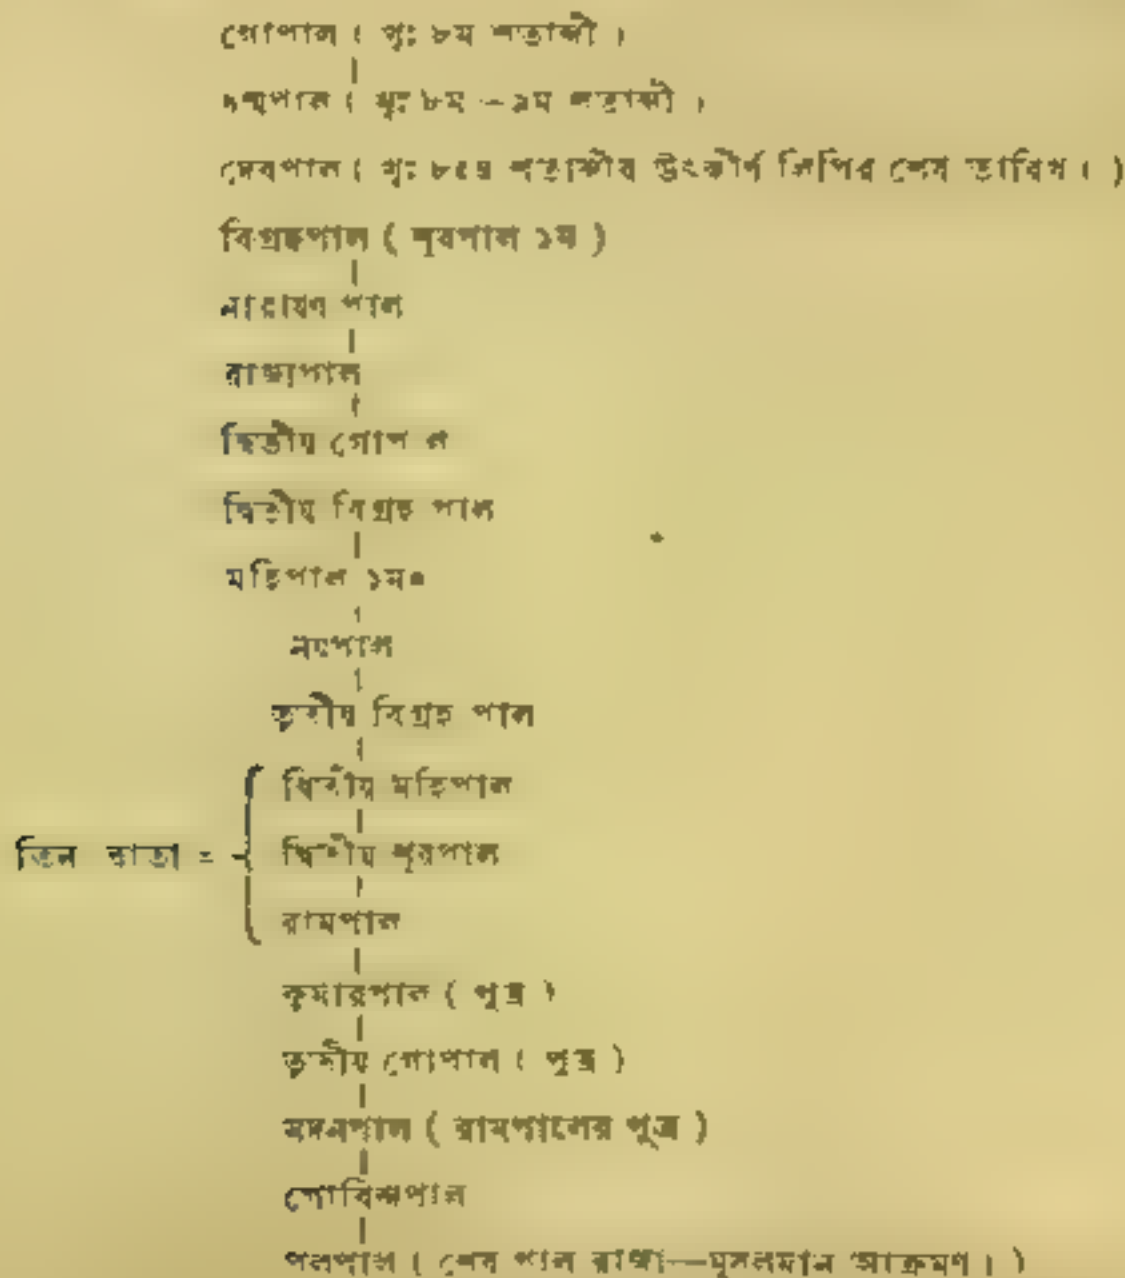 গোপাল ( খৃঃ ৮ম শতাব্দী )
ধর্ম্মপাল ( খৃঃ ৮ম – ৯ম শতাব্দী )
দেবপাল ( খৃঃ শতাব্দীর উৎকীর্ণ লিপির শেষ তারিখ। )
বিগ্রহপাল ( শূরপাল ১ম )
নারায়ণ পাল
রাজ্যপাল
দ্বিতীয় গোপাল
দ্বিতীয় বিগ্রহ পাল
মহিপাল ১ম*
নয়পাল
তৃতীয় বিগ্রহ পাল
দ্বিতীয় মহিপাল
তিন ভ্রাতা =
দ্বিতীয় শূরপাল
রামপাল
কুমারপাল ( পুত্র )
তৃতীয় গোপাল ( পুত্র )
মদনপাল ( রামপালের পুত্র )
গোবিন্দপাল
পলপাল ( শেষ পাল রাজা—মুসলমান আক্রমণ। )